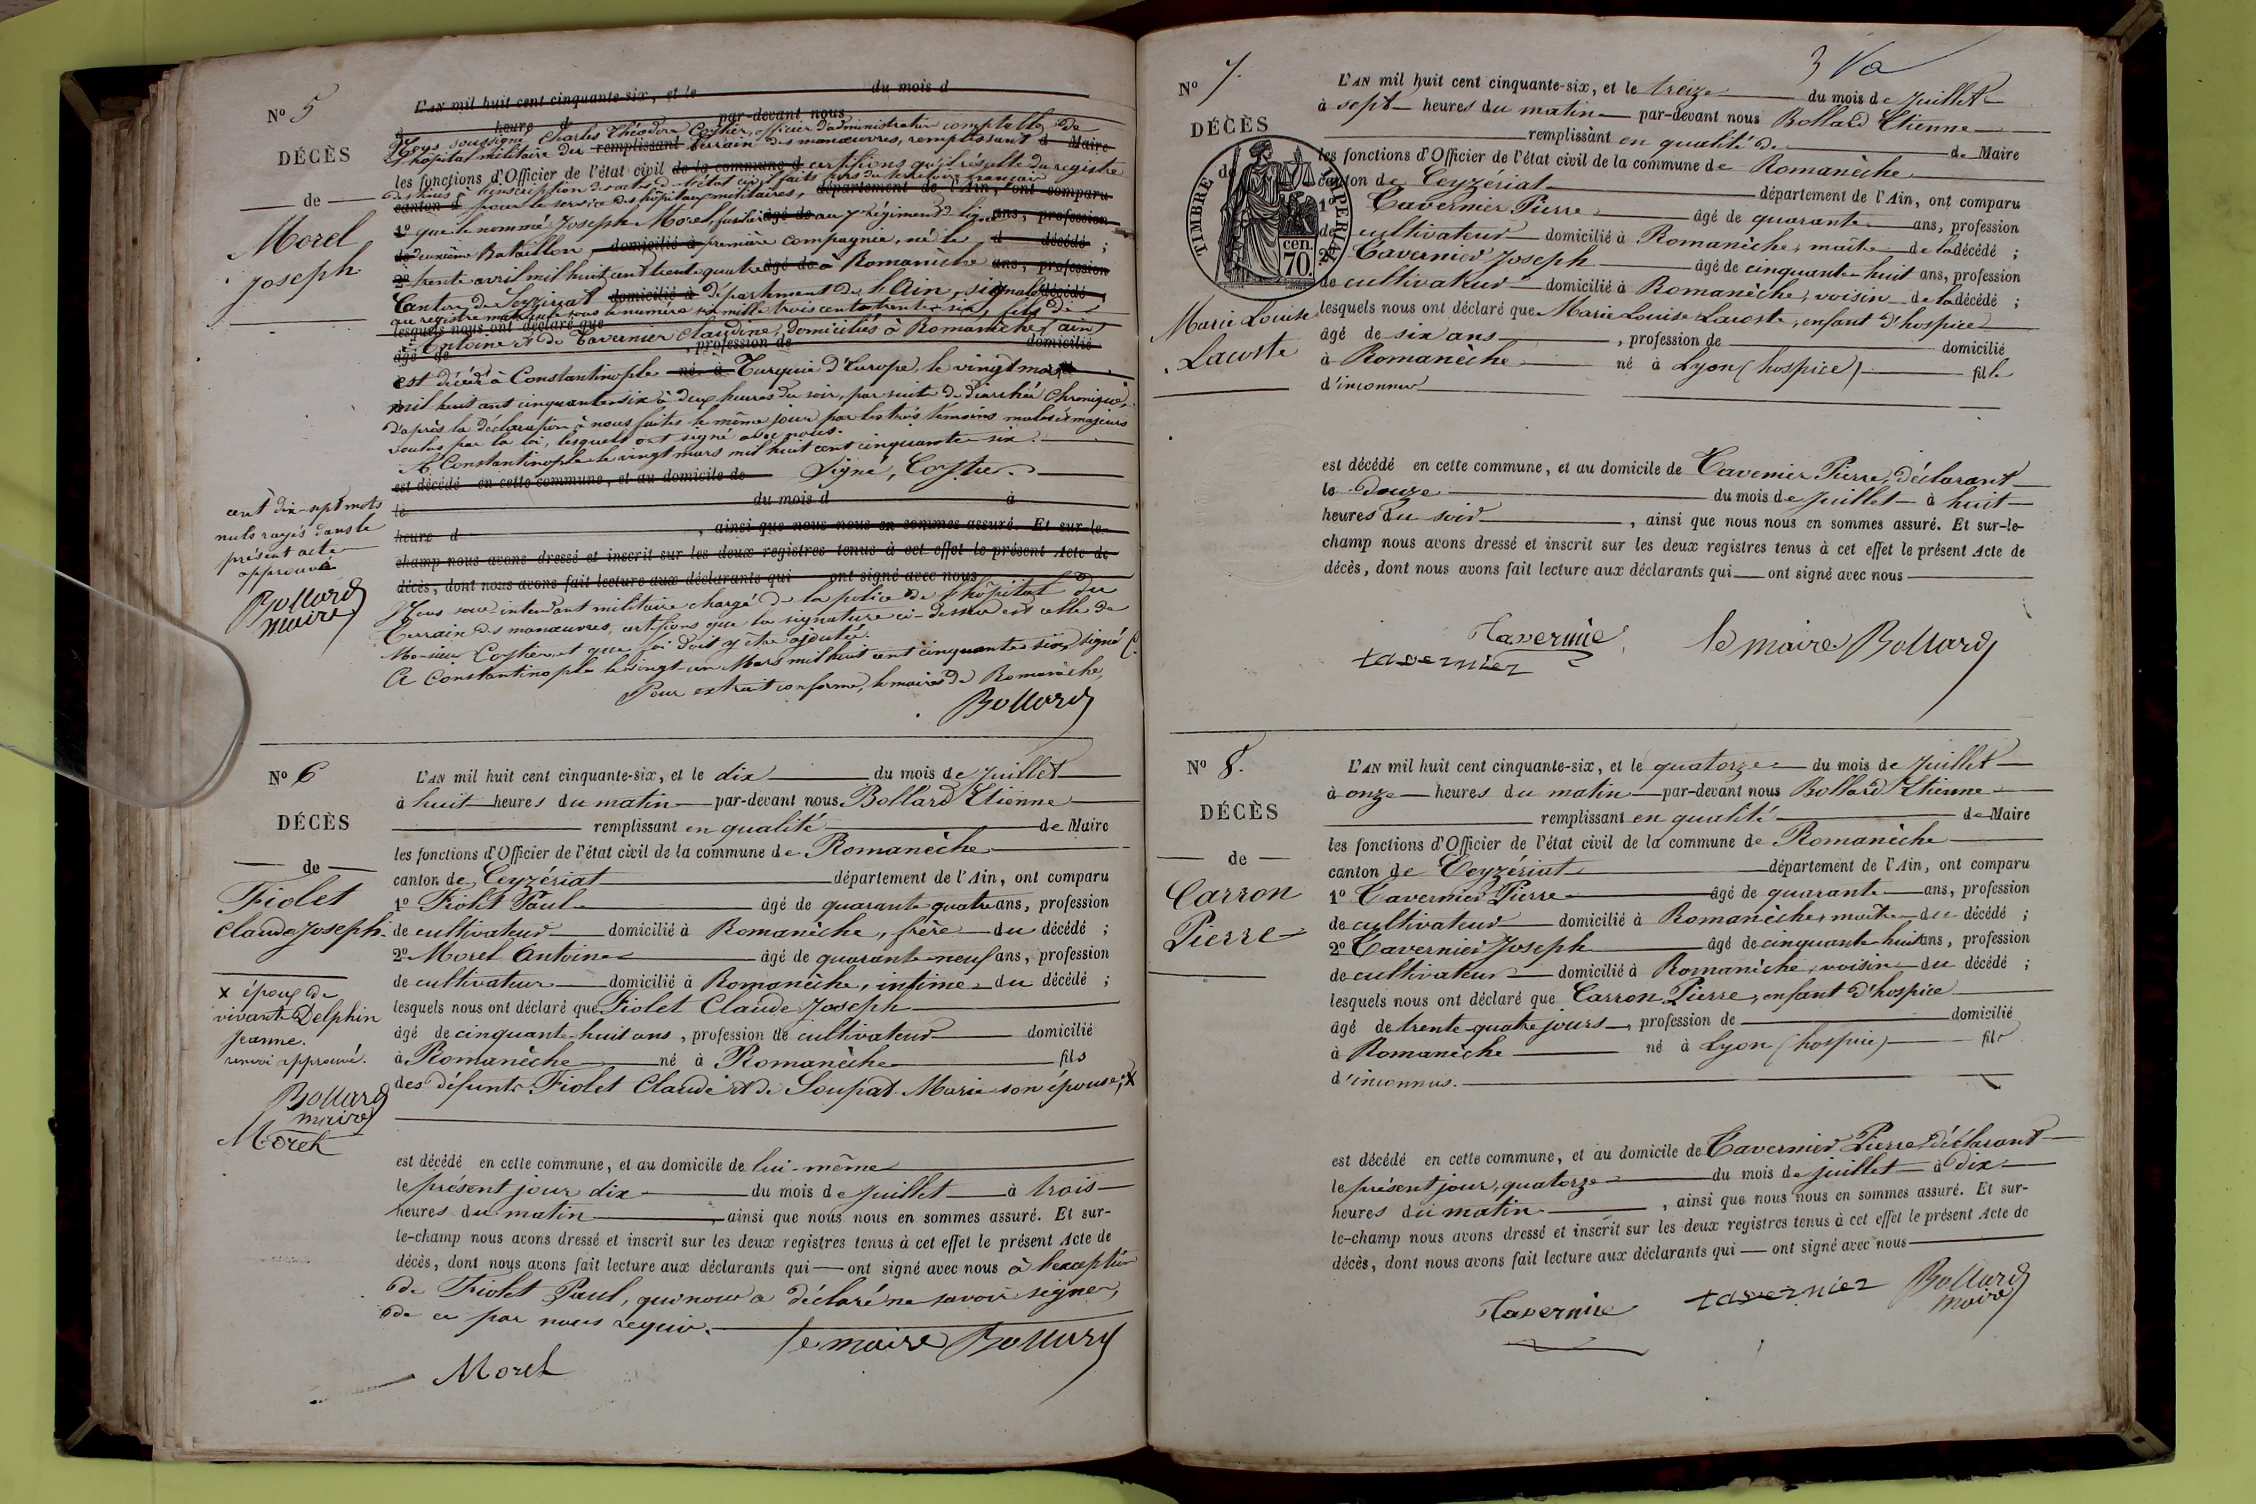 No 5
DÉCÈS
de
Morel
Joseph
L'AN mil huit cent cinquante-six, et le du mois d
heure d par-devant nous
Nous soussigné Charles Théodore Coytier, officier d'administration comptable de
l'hôpital militaire du remplissant terrain des manœuvres, remplissant d Maire
les fonctions d'Officier de l'état civil de la commune d certifions qu'il résulte du registre
destiné à l'inscription des actes de l'état civil faits hors du territoire français
canton d pour le service des hôpitaux militaires, département de l'Ain, ont comparu
1o que le nommé Joseph Morel, fusilier âgé de au 7e régiment de ligne ans, profession
de deuxième Bataillon, domicilié à première compagnie, né le d décédé ;
2o trente avril mil huit cent trente quatre âgé de à Romanèche ans, profession
Canton de Ceyzériat domicilié à département de l'Ain, signalé décédé ;
au registre matricule sous le numéro six mille trois cent trente six, fils de
lesquels nous ont déclaré que
Antoine et de Tavernier Claudine, domiciliés à Romanèche (ain)
âgé de , profession de domicilié
est décédé à Constantinople né à Turquie d'Europe, le vingt mars
mil huit cent cinquante six à deux heures du soir, par suite de diarrhée chronique,
d'après la déclaration à nous faite le même jour par les trois témoins mâles et majeurs
voulus par la loi, lesquels ont signé avec nous.
A Constantinople le vingt mars mil huit cent cinquante six.
est décédé en cette commune, et au domicile de Signé, Coytier.
le du mois d à
heure d , ainsi que nous nous en sommes assuré. Et sur-le-
champ nous avons dressé et inscrit sur les deux registres tenus à cet effet le présent Acte de
décès, dont nous avons fait lecture aux déclarants qui ont signé avec nous
Nous sous-intendant militaire chargé de la police de l'hôpital du
Terrain des manœuvres, certifions que la signature ci-dessus est celle de
Monsieur Coytier et que foi doit y être ajoutée.
A Constantinople le vingt-un Mars mil huit cent cinquante six, signé
Pour extrait conforme, le maire de Romanèche,
Bollard
cent dix-sept mots
nuls rayés dans le
présent acte
approuvé
Bollard
maire
No 6
DÉCÈS
de
Fiolet
Claude Joseph.
L'AN mil huit cent cinquante-six, et le dix du mois de Juillet
à huit heures du matin par-devant nous Bollard Etienne
remplissant en qualité de Maire
les fonctions d'Officier de l'état civil de la commune de Romanèche
canton de Ceyzériat département de l'Ain, ont comparu
1o Fiolet Paul âgé de quarante quatre ans, profession
de cultivateur domicilié à Romanèche, frère du décédé ;
2o Morel Antoine âgé de quarante-neuf ans, profession
de cultivateur domicilié à Romanèche, intime du décédé ;
lesquels nous ont déclaré que Fiolet Claude Joseph
âgé de cinquante-huit ans, profession de cultivateur domicilié
à Romanèche né à Romanèche fils
des défunts Fiolet Claude et de Soupat Marie son épouse; x
est décédé en cette commune, et au domicile de lui-même
le présent jour dix du mois de Juillet à trois
heures du matin, ainsi que nous nous en sommes assuré. Et sur-
le-champ nous avons dressé et inscrit sur les deux registres tenus à cet effet le présent Acte de
décès, dont nous avons fait lecture aux déclarants qui ont signé avec nous à l'exception
de Fiolet Paul, qui nous a déclaré ne savoir signer,
de ce par nous requis.
le maire Bollard
Morel
x époux de
vivante Delphin
Jeanne.
renvoi approuvé.
Bollard
maire
Morel
3 Va
No 7.
DÉCÈS
de
TIMBRE IMPERIAL
70 cen.
Marie Louise
Lacoste
L'AN mil huit cent cinquante-six, et le treize du mois de Juillet
à sept heures du matin par-devant nous Bollard Etienne
remplissant en qualité de de Maire
les fonctions d'Officier de l'état civil de la commune de Romanèche
canton de Ceyzériat département de l'Ain, ont comparu
1o Tavernier Pierre âgé de quarante ans, profession
de cultivateur domicilié à Romanèche, maître de la décédé ;
2o Tavernier Joseph âgé de cinquante-huit ans, profession
de cultivateur domicilié à Romanèche, voisin de la décédé ;
lesquels nous ont déclaré que Marie Louise Lacoste, enfant d'hospice
âgé de six ans , profession de domicilié
à Romanèche né à Lyon (hospice) fille
d'inconnus
est décédé en cette commune, et au domicile de Tavernier Pierre, déclarant
le douze du mois de Juillet à huit
heures du soir , ainsi que nous nous en sommes assuré. Et sur-le-
champ nous avons dressé et inscrit sur les deux registres tenus à cet effet le présent Acte de
décès, dont nous avons fait lecture aux déclarants qui ont signé avec nous
Tavernier le maire Bollard
tavernier
No 8.
DÉCÈS
de
Carron
Pierre
L'AN mil huit cent cinquante-six, et le quatorze du mois de Juillet
à onze heures du matin par-devant nous Bollard Etienne
remplissant en qualité de Maire
les fonctions d'Officier de l'état civil de la commune de Romanèche
canton de Ceyzériat département de l'Ain, ont comparu
1o Tavernier Pierre âgé de quarante ans, profession
de cultivateur domicilié à Romanèche, maître du décédé ;
2o Tavernier Joseph âgé de cinquante huit ans, profession
de cultivateur domicilié à Romanèche, voisin du décédé ;
lesquels nous ont déclaré que Carron Pierre, enfant d'hospice
âgé de trente-quatre jours, profession de domicilié
à Romanèche né à Lyon (hospice) fils
d'inconnus.
est décédé en cette commune, et au domicile de Tavernier Pierre déclarant
le présent jour, quatorze du mois de juillet à dix
heures du matin , ainsi que nous nous en sommes assuré. Et sur-
le-champ nous avons dressé et inscrit sur les deux registres tenus à cet effet le présent Acte de
décès, dont nous avons fait lecture aux déclarants qui ont signé avec nous
Tavernier tavernier Bollard
maire